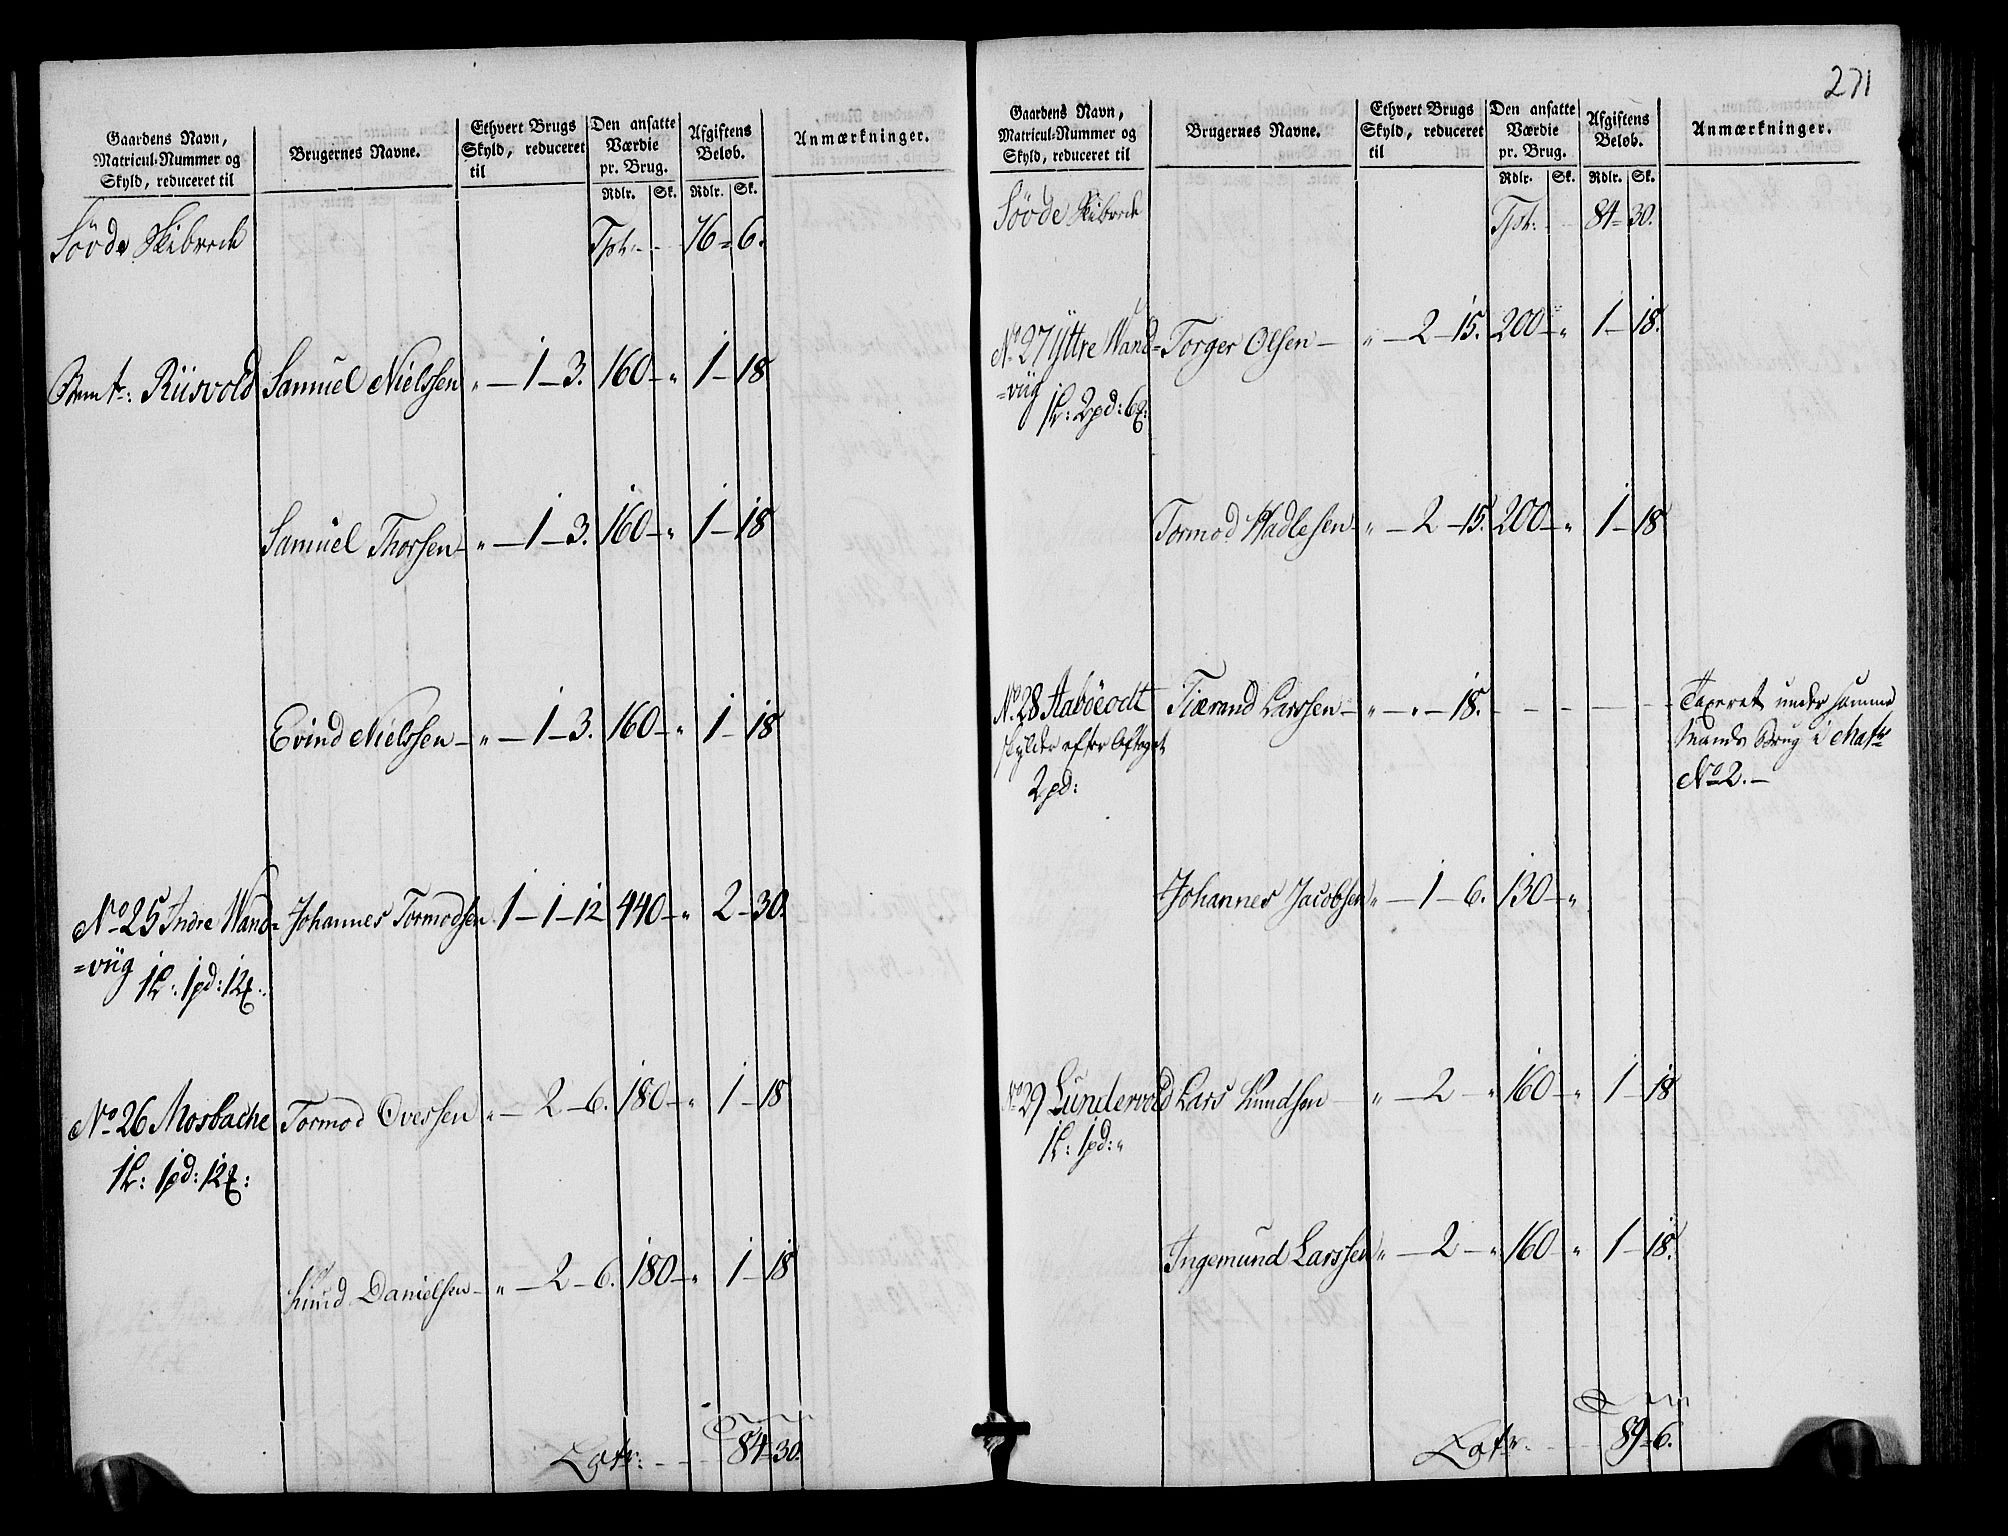 Gaardens Navn,
Matricul-Nummer og
Skyld, reduceret til
Brugernes Navne.
Ethvert Brugs
Skyld, reduceret
til
Den ansatte
Værdie
pr. Brug.
Rdlr. Sk.
Afgiftens
Beløb.
Rdlr. Sk.
Anmærkninger.
Søvde Skibrede Tpt: 76 = 6.
Riisvold Samuel Nielssen " — 1 — 3. 160 — " 1 — 18
Samuel Thorsen — " — 1 — 3. 160 — " 1 — 18
Evind Nielssen — " — 1 — 3. 160 — " 1 — 18
No 25 Indre Wand= Johannes Tormodsen 1 — 1 — 12 440 — " 2 — 30.
=viig
1 L: 1 pd: 12 ℔:
No 26 Mosbache Tormod Ovessen " — 2 — 6. 180 — " 1 — 18
1 L: 1 pd: 12 ℔:
Knud Danielsen — " — 2 — 6. 180 — " 1 — 18
Latr: 84 = 30.
271
Gaardens Navn,
Matricul-Nummer og
Skyld, reduceret til
Brugernes Navne.
Ethvert Brugs
Skyld, reduceret
til
Den ansatte
Værdie
pr. Brug.
Rdlr. Sk.
Afgiftens
Beløb.
Rdlr. Sk.
Anmærkninger.
Søvde Skibrede Tpt: 84 = 30.
No 27 Yttre Wand= Torger Olsen — " — 2 — 15. 200 — " 1 — 18.
=viig
1 L: 2 pd: 6 ℔:
Tormod Hadlesen — " — 2 — 15. 200 — " 1 — 18
No 28 Aabøeodt Tiærand Larssen — " — " — 18. Taxeret under samme
skylder efter Aftaget Mands Brug i Matr
2 pd: No 2. —
Johannes Jacobsen " — 1 — 6. 130 — "
No 29 Lundervold Lars Knudsen " — 2 — " 160 — " 1 — 18
1 L: 1 pd: "
Ingemund Larssen " — 2 — " 160 " 1 — 18.
Latr: 89 = 6.